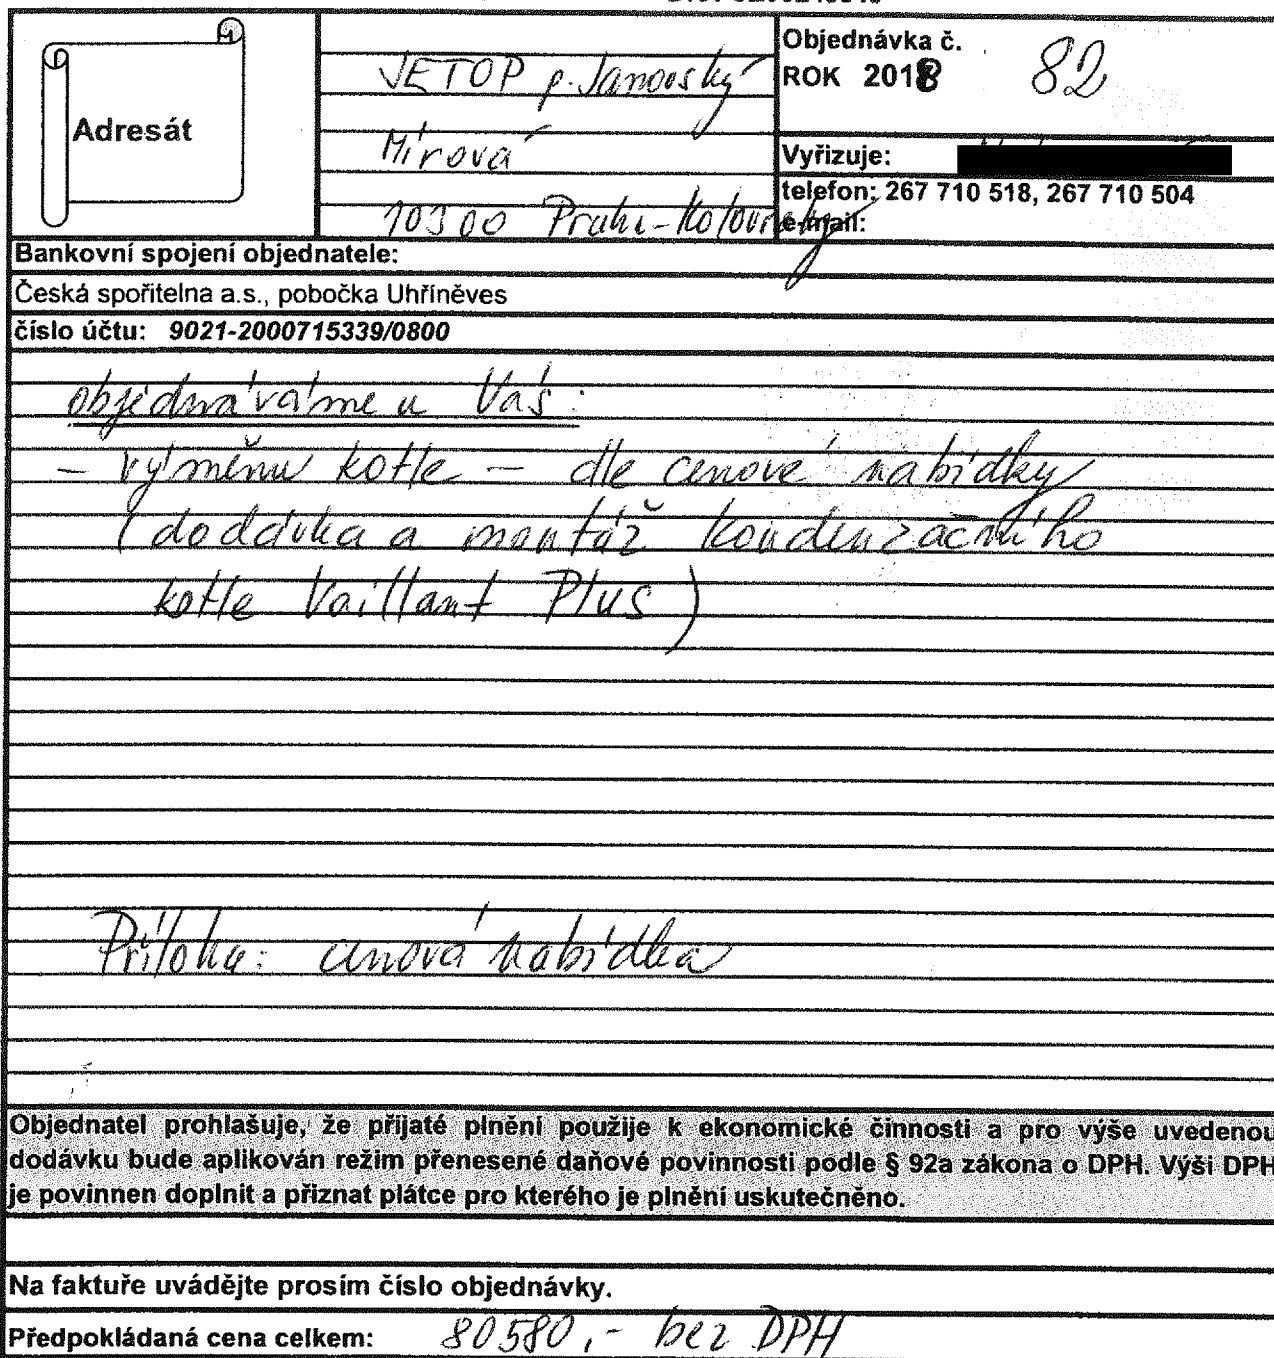 Adresát
JETOP p. Janovský
Mírová
10300 Praha-Kolovraty
Objednávka č.
ROK 2018 82
Vyřizuje:
telefon: 267 710 518, 267 710 504
e-mail:
Bankovní spojení objednatele:
Česká spořitelna a.s., pobočka Uhříněves
číslo účtu: 9021-2000715339/0800
objednáváme u Vás:
- výměnu kotle - dle cenové nabídky
(dodávka a montáž kondenzačního
kotle Vaillant Plus)
Příloha: cenová nabídka
Objednatel prohlašuje, že přijaté plnění použije k ekonomické činnosti a pro výše uvedenou
dodávku bude aplikován režim přenesené daňové povinnosti podle § 92a zákona o DPH. Výši DPH
je povinnen doplnit a přiznat plátce pro kterého je plnění uskutečněno.
Na faktuře uvádějte prosím číslo objednávky.
Předpokládaná cena celkem: 80580,- bez DPH